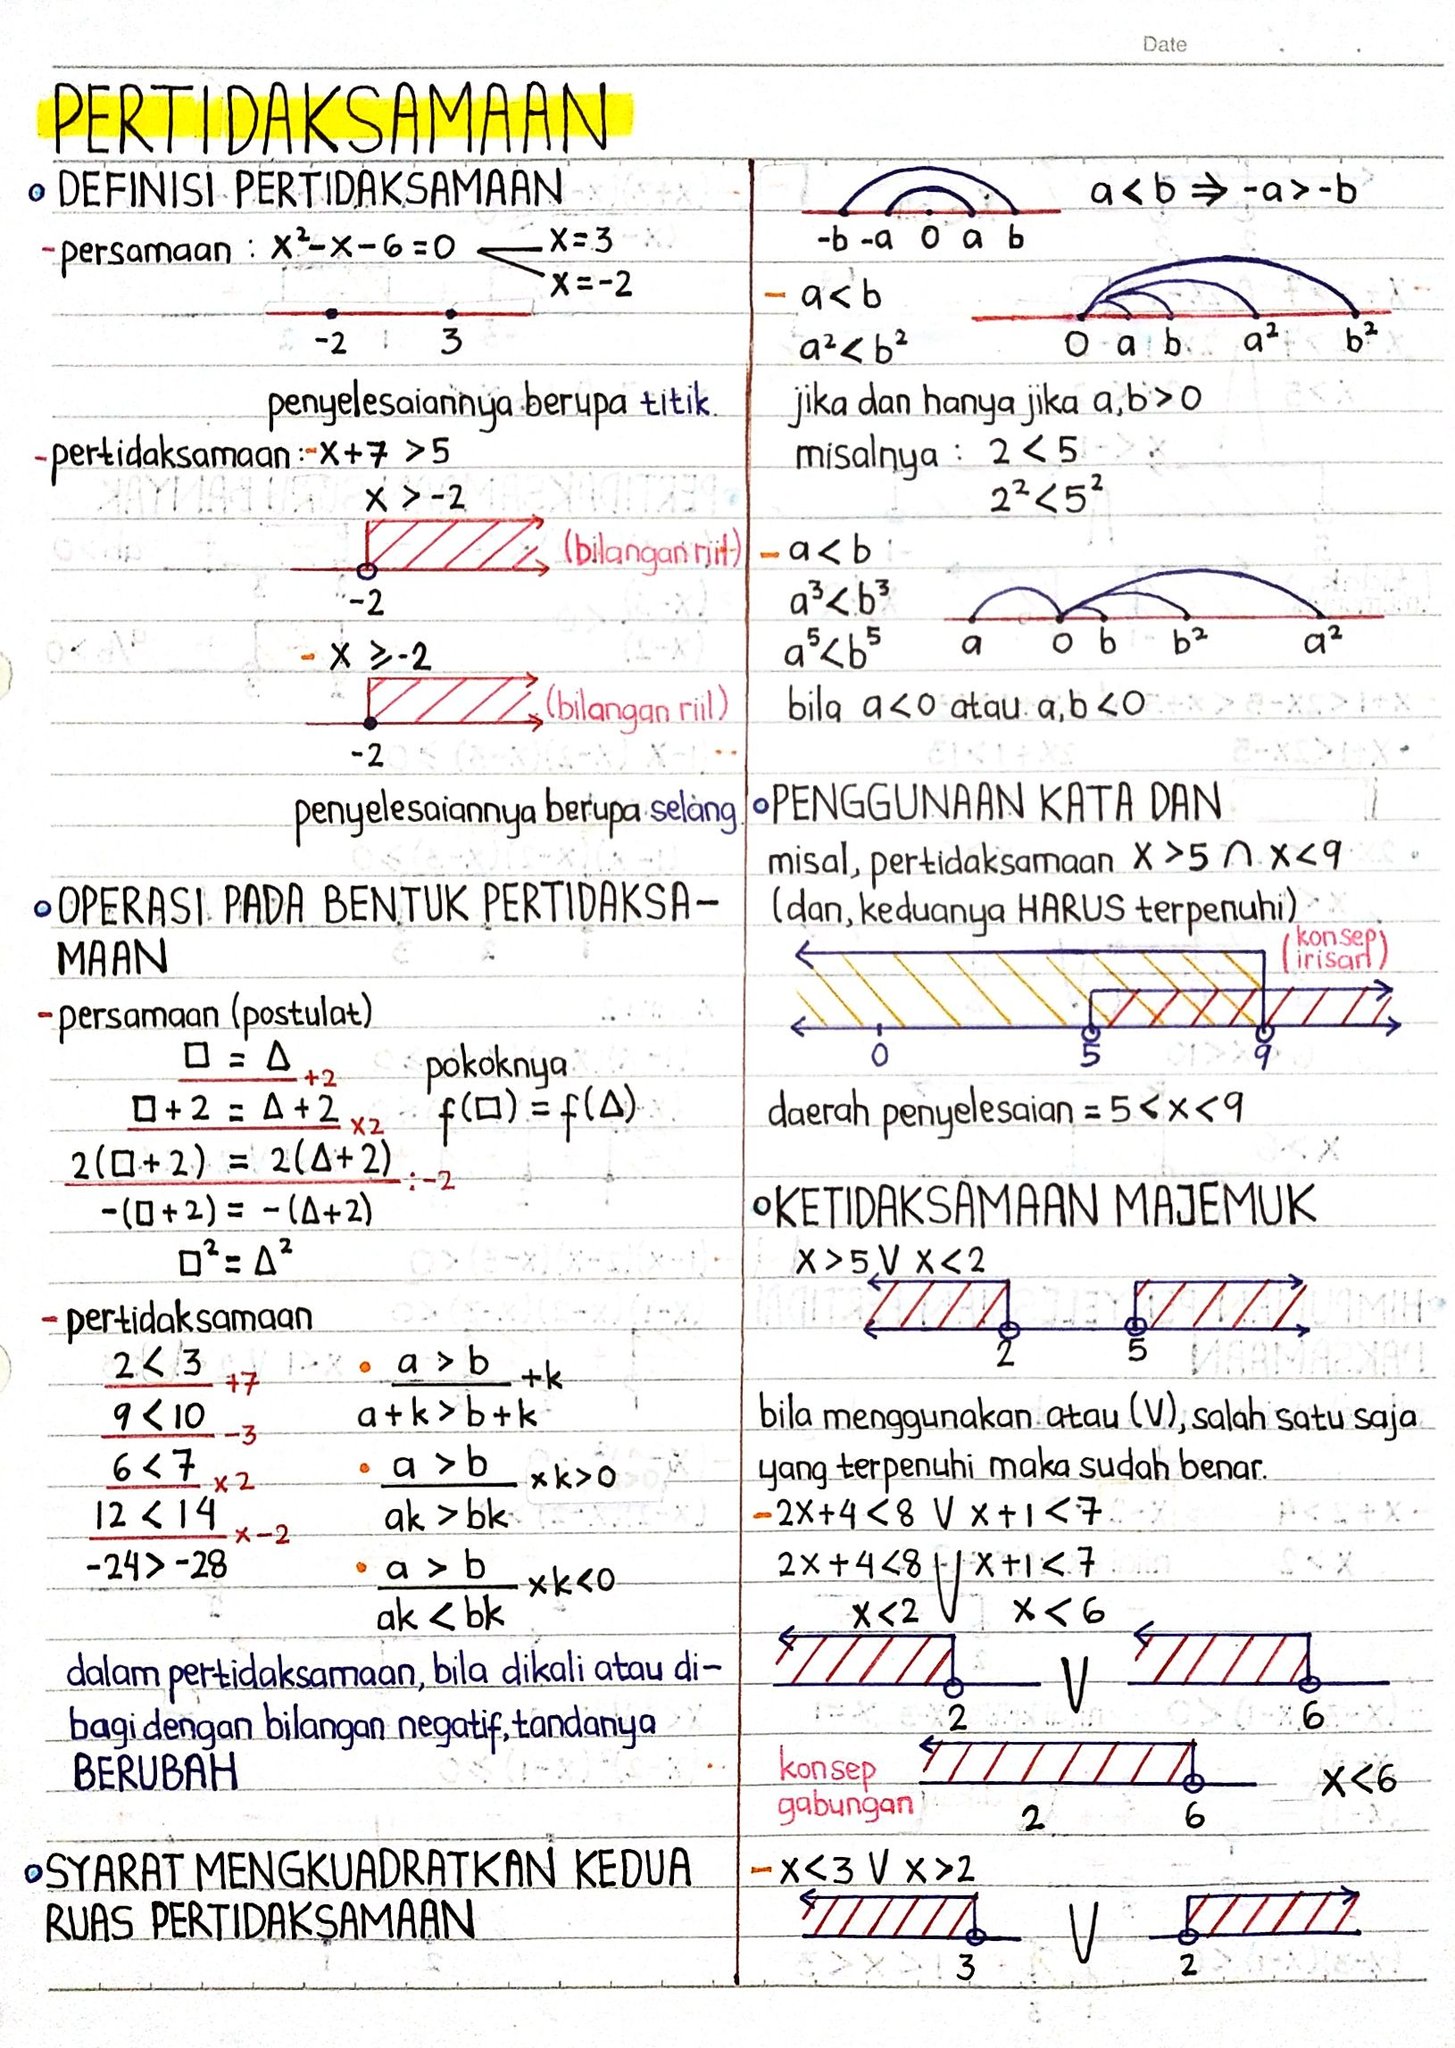 Date
PERTIDAKSAMAAN
DEFINISI PERTIDAKSAMAAN
- persamaan : x² - x - 6 = 0
x = 3
x = -2
-2 3
penyelesaiannya berupa titik.
- pertidaksamaan : - x + 7 > 5
x > -2
(bilangan riil)
-2
- x ≥ -2
(bilangan riil)
-2
penyelesaiannya berupa selang
OPERASI PADA BENTUK PERTIDAKSA-
MAAN
- persamaan (postulat)
□ = Δ +2
□ + 2 = Δ + 2 x2
2(□ + 2) = 2(Δ + 2) : -2
-(□ + 2) = -(Δ + 2)
□² = Δ²
pokoknya
f(□) = f(Δ)
- pertidaksamaan
2 < 3 +7
9 < 10 -3
6 < 7 x2
12 < 14 x-2
-24 > -28
• a > b +k
a + k > b + k
• a > b x k > 0
ak > bk
• a > b x k < 0
ak < bk
dalam pertidaksamaan, bila dikali atau di-
bagi dengan bilangan negatif, tandanya
BERUBAH
SYARAT MENGKUADRATKAN KEDUA
RUAS PERTIDAKSAMAAN
-b -a 0 a b
a < b ⇒ -a > -b
- a < b
a² < b²
0 a b a² b²
jika dan hanya jika a, b > 0
misalnya : 2 < 5
2² < 5²
- a < b
a³ < b³
a⁵ < b⁵
a 0 b b² a²
bila a < 0 atau a, b < 0
PENGGUNAAN KATA DAN
misal, pertidaksamaan x > 5 ∩ x < 9
(dan, keduanya HARUS terpenuhi)
(konsep
irisan)
0 5 9
daerah penyelesaian = 5 < x < 9
KETIDAKSAMAAN MAJEMUK
x > 5 V x < 2
2 5
bila menggunakan atau (V), salah satu saja
yang terpenuhi maka sudah benar.
- 2x + 4 < 8 V x + 1 < 7
2x + 4 < 8 V x + 1 < 7
x < 2 V x < 6
2 V 6
konsep
gabungan
2 6
x < 6
- x < 3 V x > 2
3 V 2